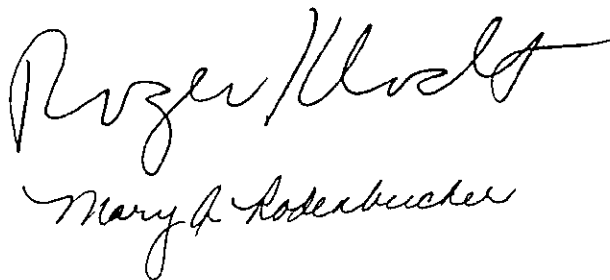 Roger Klodt
Mary A Rodenbucher